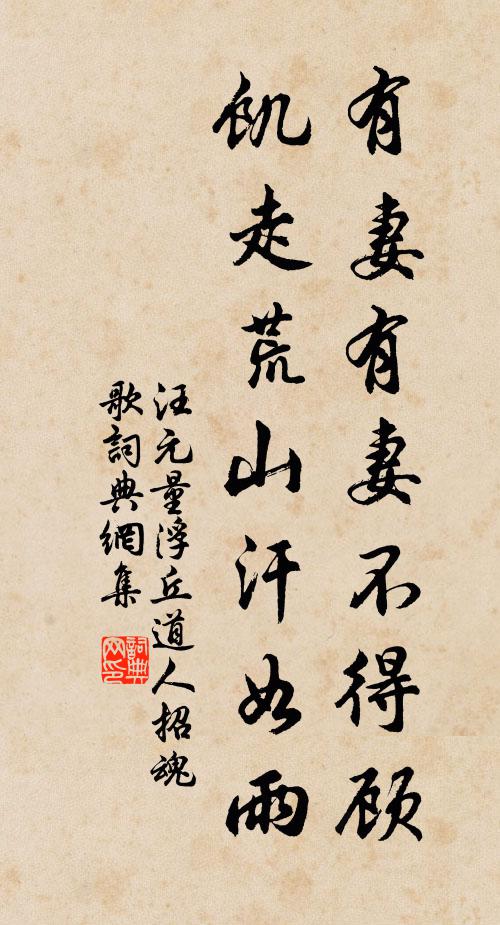 有妻有妻不得顾
飢走荒山汗如雨
汪元量浮丘道人招魂
歌詞典網集
詞典
网印